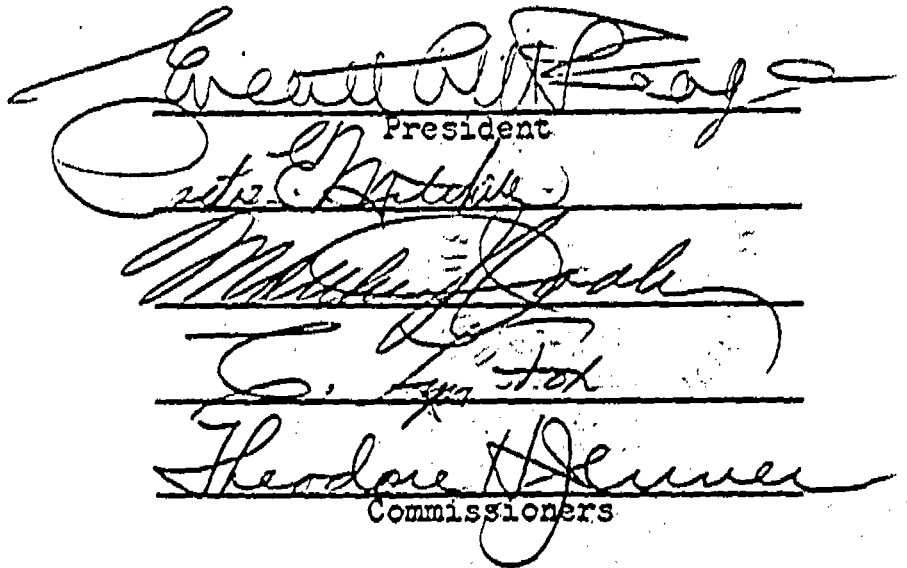 Everett C. McKeage
President
Peter E. Mitchell
Matthew J. Dooley
C. Lyn Fox
Theodore H. Jenner
Commissioners